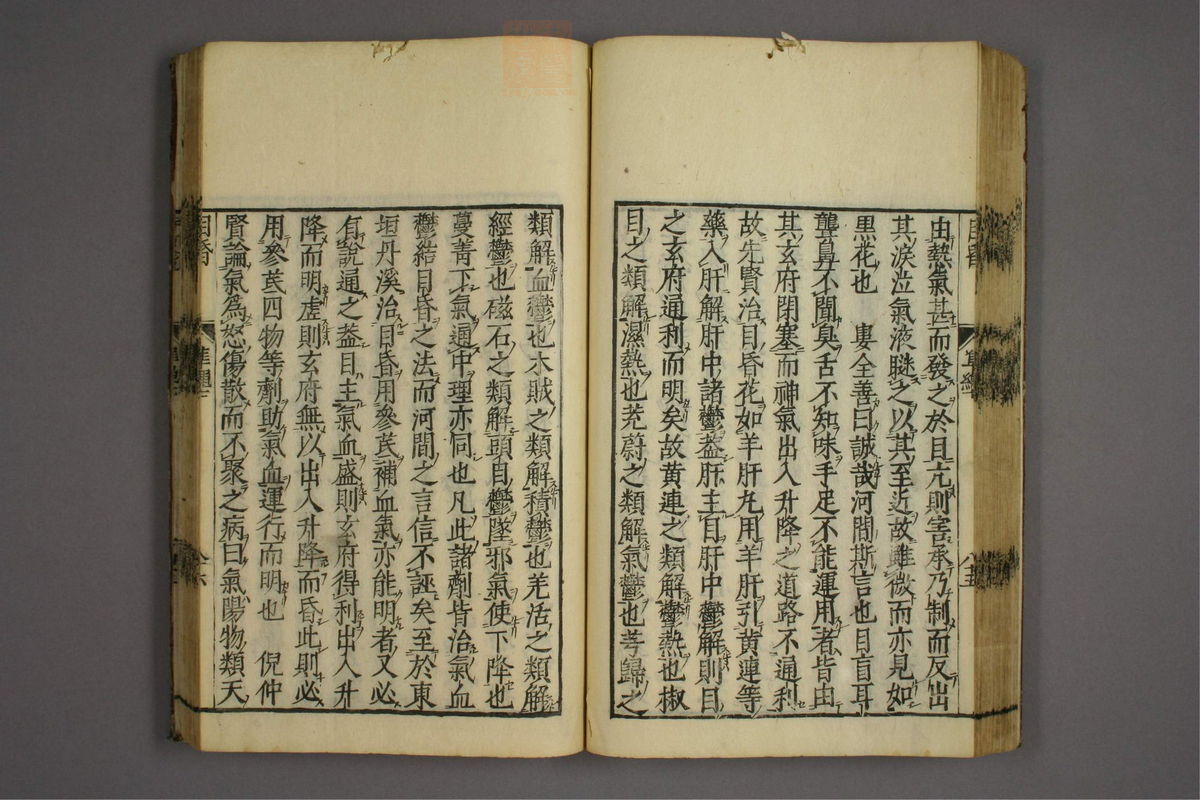 由熱氣甚而發之於目亢則害承乃制而反出
其淚泣氣液𦡀之以其至近故雖微而亦見如
黑花也　婁全善曰誠哉河間斯言也目盲耳
聾鼻不聞臭舌不知味手足不能運用者皆由
其玄府閉塞而神氣出入升降之道路不通利
故先賢治目昏花如羊肝丸用羊肝引黃連等
藥入肝解肝中諸鬱盖肝主目肝中鬱解則目
之玄府通利而明矣故黃連之類解鬱熱也椒
目之類解濕熱也茺蔚之類解氣鬱也芎歸之
類解血鬱也木賊之類解積鬱也羌活之類解
經鬱也磁石之類解頭目鬱墜邪氣使下降也
蔓菁下氣通中理亦同也凡此諸劑皆治氣血
鬱結目昏之法而河間之言信不誣矣至於東
垣丹溪治目昏用參芪補血氣亦能明者又必
有說通之盖目主氣血盛則玄府得利出入升
降而明虛則玄府無以出入升降而昏此則必
用參芪四物等劑助氣血運行而明也　倪仲
賢論氣為怒傷散而不聚之病曰氣陽物類天
目昏